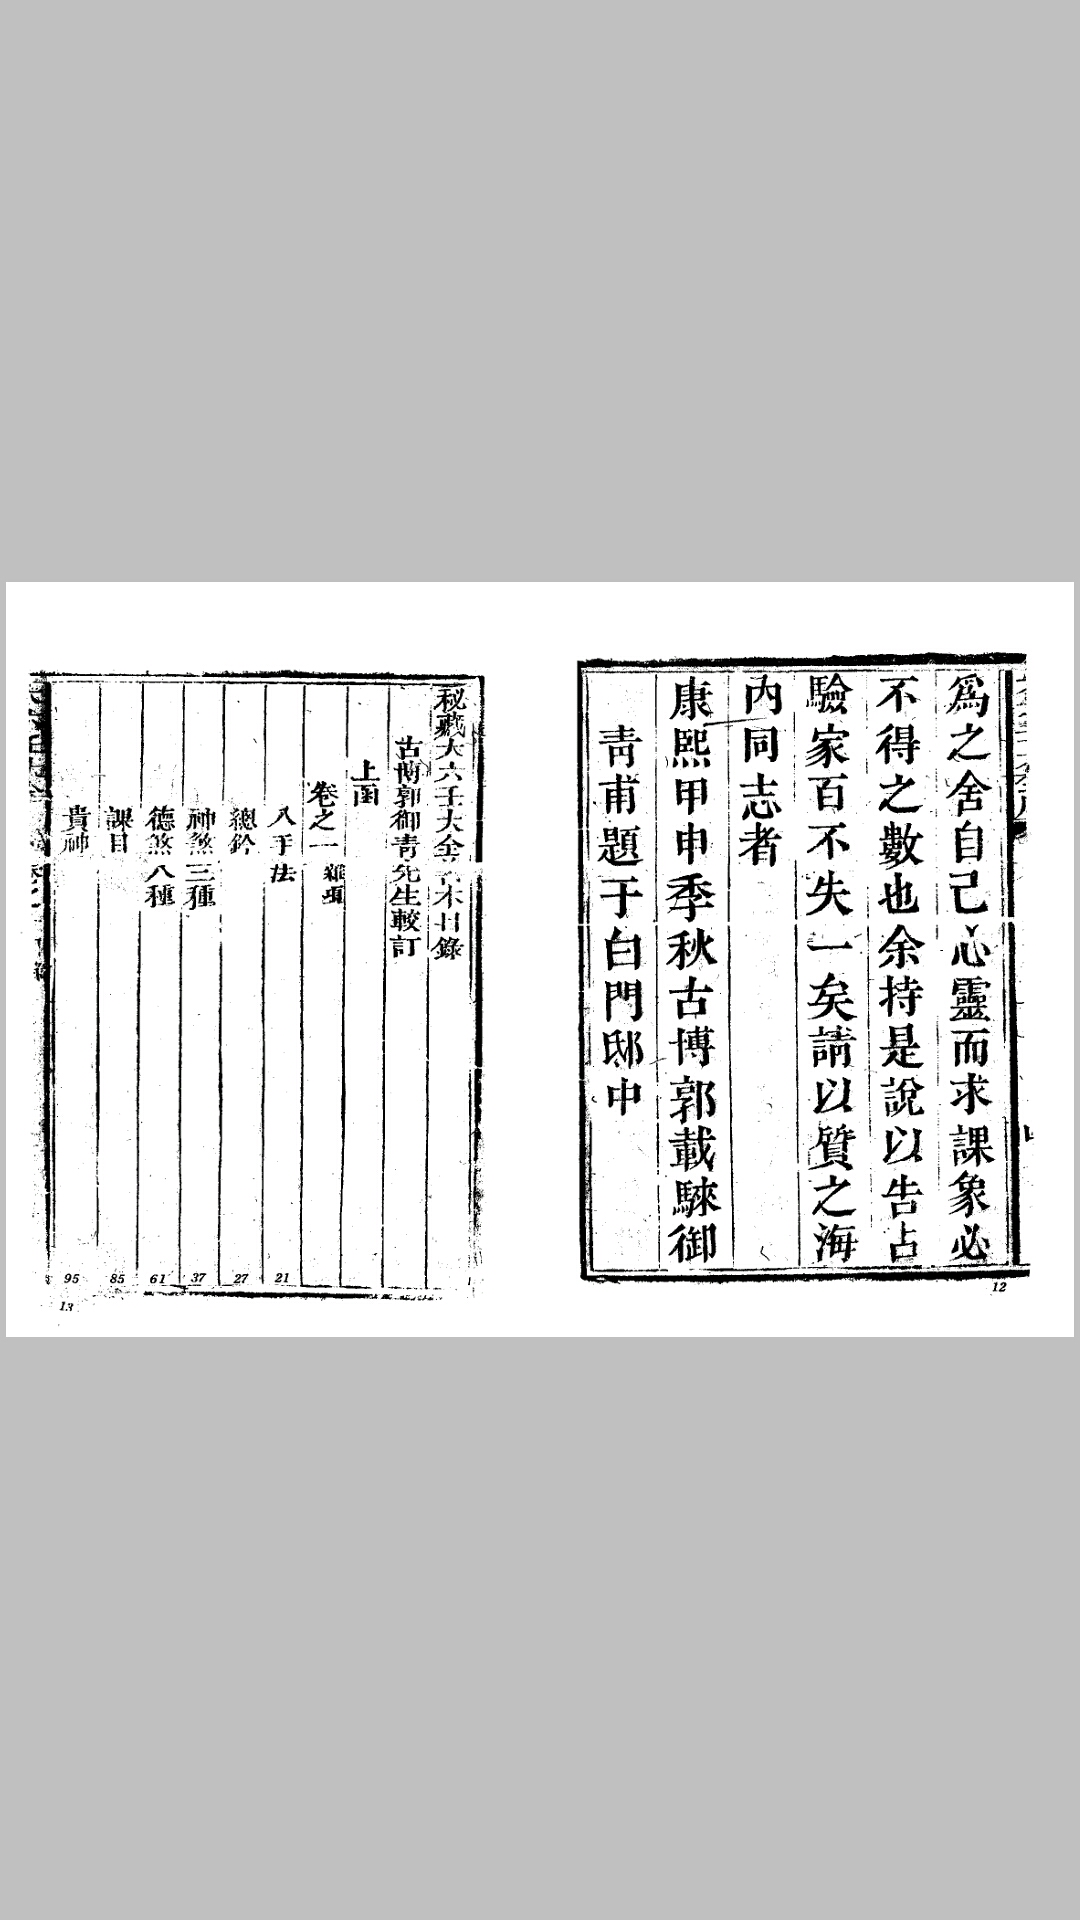 爲之舍自己心靈而求課象必
不得之數也余持是說以告占
驗家百不失一矣請以質之海
內同志者
康熙甲申季秋古博郭載騋御
青甫題于白門邸中
12
秘藏大六壬大全 木目錄
古博郭御青先生較訂
上函
卷之一 雜項
入手法 21
總鈐 27
神煞三種 37
德煞八種 61
課目 85
貴神 95
13